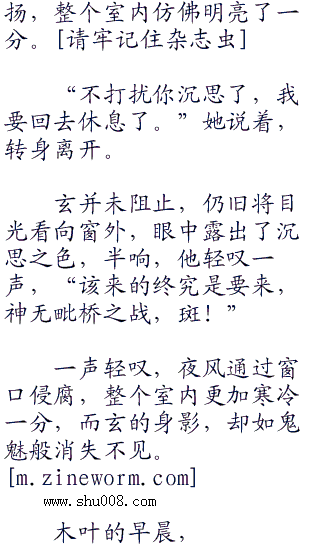 扬，整个室内仿佛明亮了一
分。[请牢记住杂志虫]
“不打扰你沉思了，我
要回去休息了。”她说着，
转身离开。
玄并未阻止，仍旧将目
光看向窗外，眼中露出了沉
思之色，半响，他轻叹一
声，“该来的终究是要来，
神无毗桥之战，斑！”
一声轻叹，夜风通过窗
口侵腐，整个室内更加寒冷
一分，而玄的身影，却如鬼
魅般消失不见。
[m.zineworm.com]
www.shu008.com
木叶的早晨，